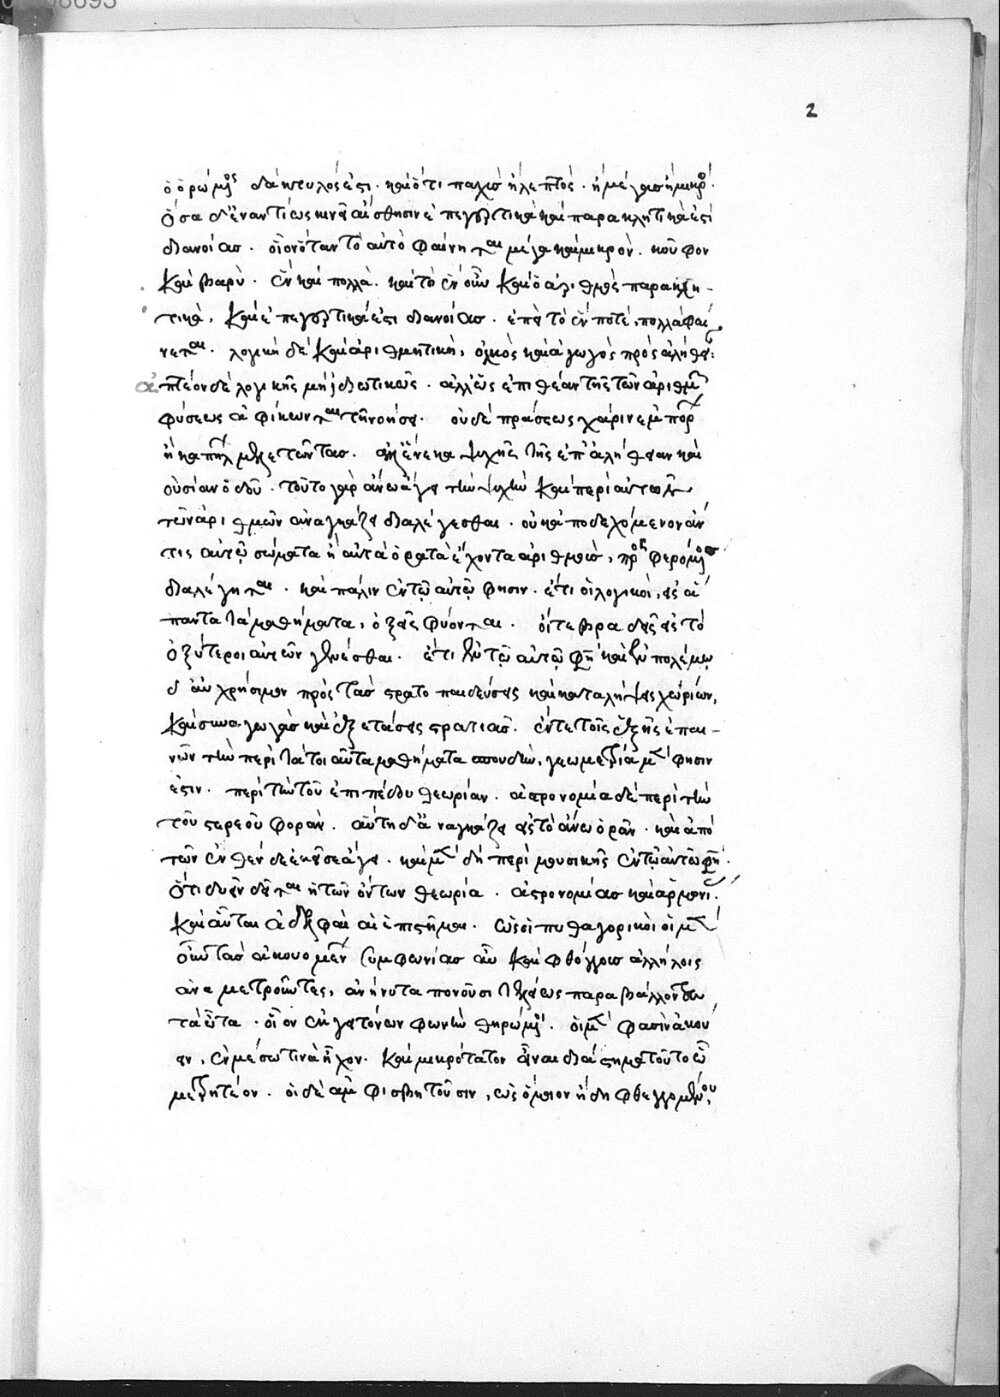 2
ὁ ὁρώμενος δάκτυλός ἐστι. καὶ ὅτι παχὺς ἢ λεπτός. ἢ μέγας ἢ μικρός.
ὅσα δ' ἐναντίως κινεῖ αἴσθησιν ἐπεγερτικὰ καὶ παρακλητικά ἐστι
διανοίας. οἷον ὅταν τὸ αὐτὸ φαίνηται μέγα καὶ μικρὸν. κοῦφον
καὶ βαρὺ. ἓν καὶ πολλὰ. καὶ τὸ ἓν οὖν καὶ ὁ ἀριθμὸς παρακλη-
τικὰ. καὶ ἐπεγερτικά ἐστι διανοίας. ἐπεὶ τὸ ἓν ποτὲ, πολλὰ φαί
νεται. λογικὴ δὲ καὶ ἀριθμητικὴ, ὁλκὸς καὶ ἀγωγὸς πρὸς ἀλήθειαν:
ἁπτέον δὲ λογικῆς μὴ ἰδιωτικῶς. ἀλλ' ἕως ἐπὶ θέαν τῆς τῶν ἀριθμῶν
φύσεως ἀφίκωνται τῇ νοήσει. οὐδὲ πράσεως χάριν ἐμπόρων
ἢ καπήλων μελετῶντας. ἀλλ' ἕνεκα ψυχῆς τῆς ἐπ' ἀλήθειαν καὶ
οὐσίαν ὁδοῦ. τοῦτο γὰρ ἄνω ἄγει τὴν ψυχὴν καὶ περὶ αὐτῶν
τῶν ἀριθμῶν ἀναγκάζει διαλέγεσθαι. οὐκ ἀποδεχόμενον ἄν
τις αὐτῷ σώματα ἢ αὐτὰ ὁρατὰ ἔχοντα ἀριθμοὺς, προφερόμενος
διαλέγηται. καὶ πάλιν ἐν τῷ αὐτῷ φησιν. ἔτι οἱ λογικοὶ, εἰς ἅ
παντα τὰ μαθήματα, ὀξεῖς φύονται. οἵ τε βραδεῖς εἰς τὸ
ὀξύτεροι αὐτῶν γίνεσθαι. ἔτι ἐν τῷ αὐτῷ φησὶ καὶ ἐν πολέμῳ
δ' αὖ χρήσιμον πρὸς τὰς στρατοπαιδεύσεις καὶ καταλήψεις χωρίων,
καὶ συναγωγὰς καὶ ἐξετάσεις στρατιᾶς. ἔν τε τοῖς ἑξῆς ἐπαι-
νῶν τὴν περὶ τὰ τοιαῦτα μαθήματα σπουδὴν, γεωμετρία μὲν φησίν
ἐστιν. περὶ τὴν τοῦ ἐπιπέδου θεωρίαν. ἀστρονομία δὲ περὶ τὴν
τοῦ στερεοῦ φορὰν. αὕτη δ' ἀναγκάζει εἰς τὸ ἄνω ὁρᾶν. καὶ ἀπὸ
τῶν ἐνθένδε ἐκεῖσε ἄγει. καὶ μὲν δὴ περὶ μουσικῆς ἐν τῷ αὐτῷ φησὶ.
ὅτι δυεῖν δεῖται ἡ τῶν ὄντων θεωρία. ἀστρονομίας καὶ ἁρμονίας.
καὶ αὗται ἀδελφαὶ αἱ ἐπιστῆμαι. ὡς οἱ πυθαγορικοὶ οἱ μὲν
οὖν τὰς ἀκουομένας συμφωνίας αὖ καὶ φθόγγοις ἀλλήλοις
ἀναμετροῦντες, ἀνήνυτα πονοῦσι τελέως παραβάλλοντες
τὰ ὦτα. οἷον ἐκ γειτόνων φωνὴν θηρώμενοι. οἱ μὲν φασὶν ἀκού
ειν, ἐν μέσῳ τινὰ ἦχον. καὶ μικρότατον εἶναι διάστημα τοῦτο ᾧ
μετρητέον. οἱ δὲ ἀμφισβητοῦσιν, ὡς ὅμοιον ἤδη φθεγγομένου,